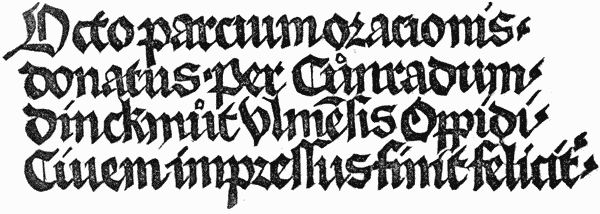 Octo parcium oracionis·
donatus·per Cůnradum·
dinckmůt Vlmēsis Oppidi·
Ciuem impressus finit felicit᷑·